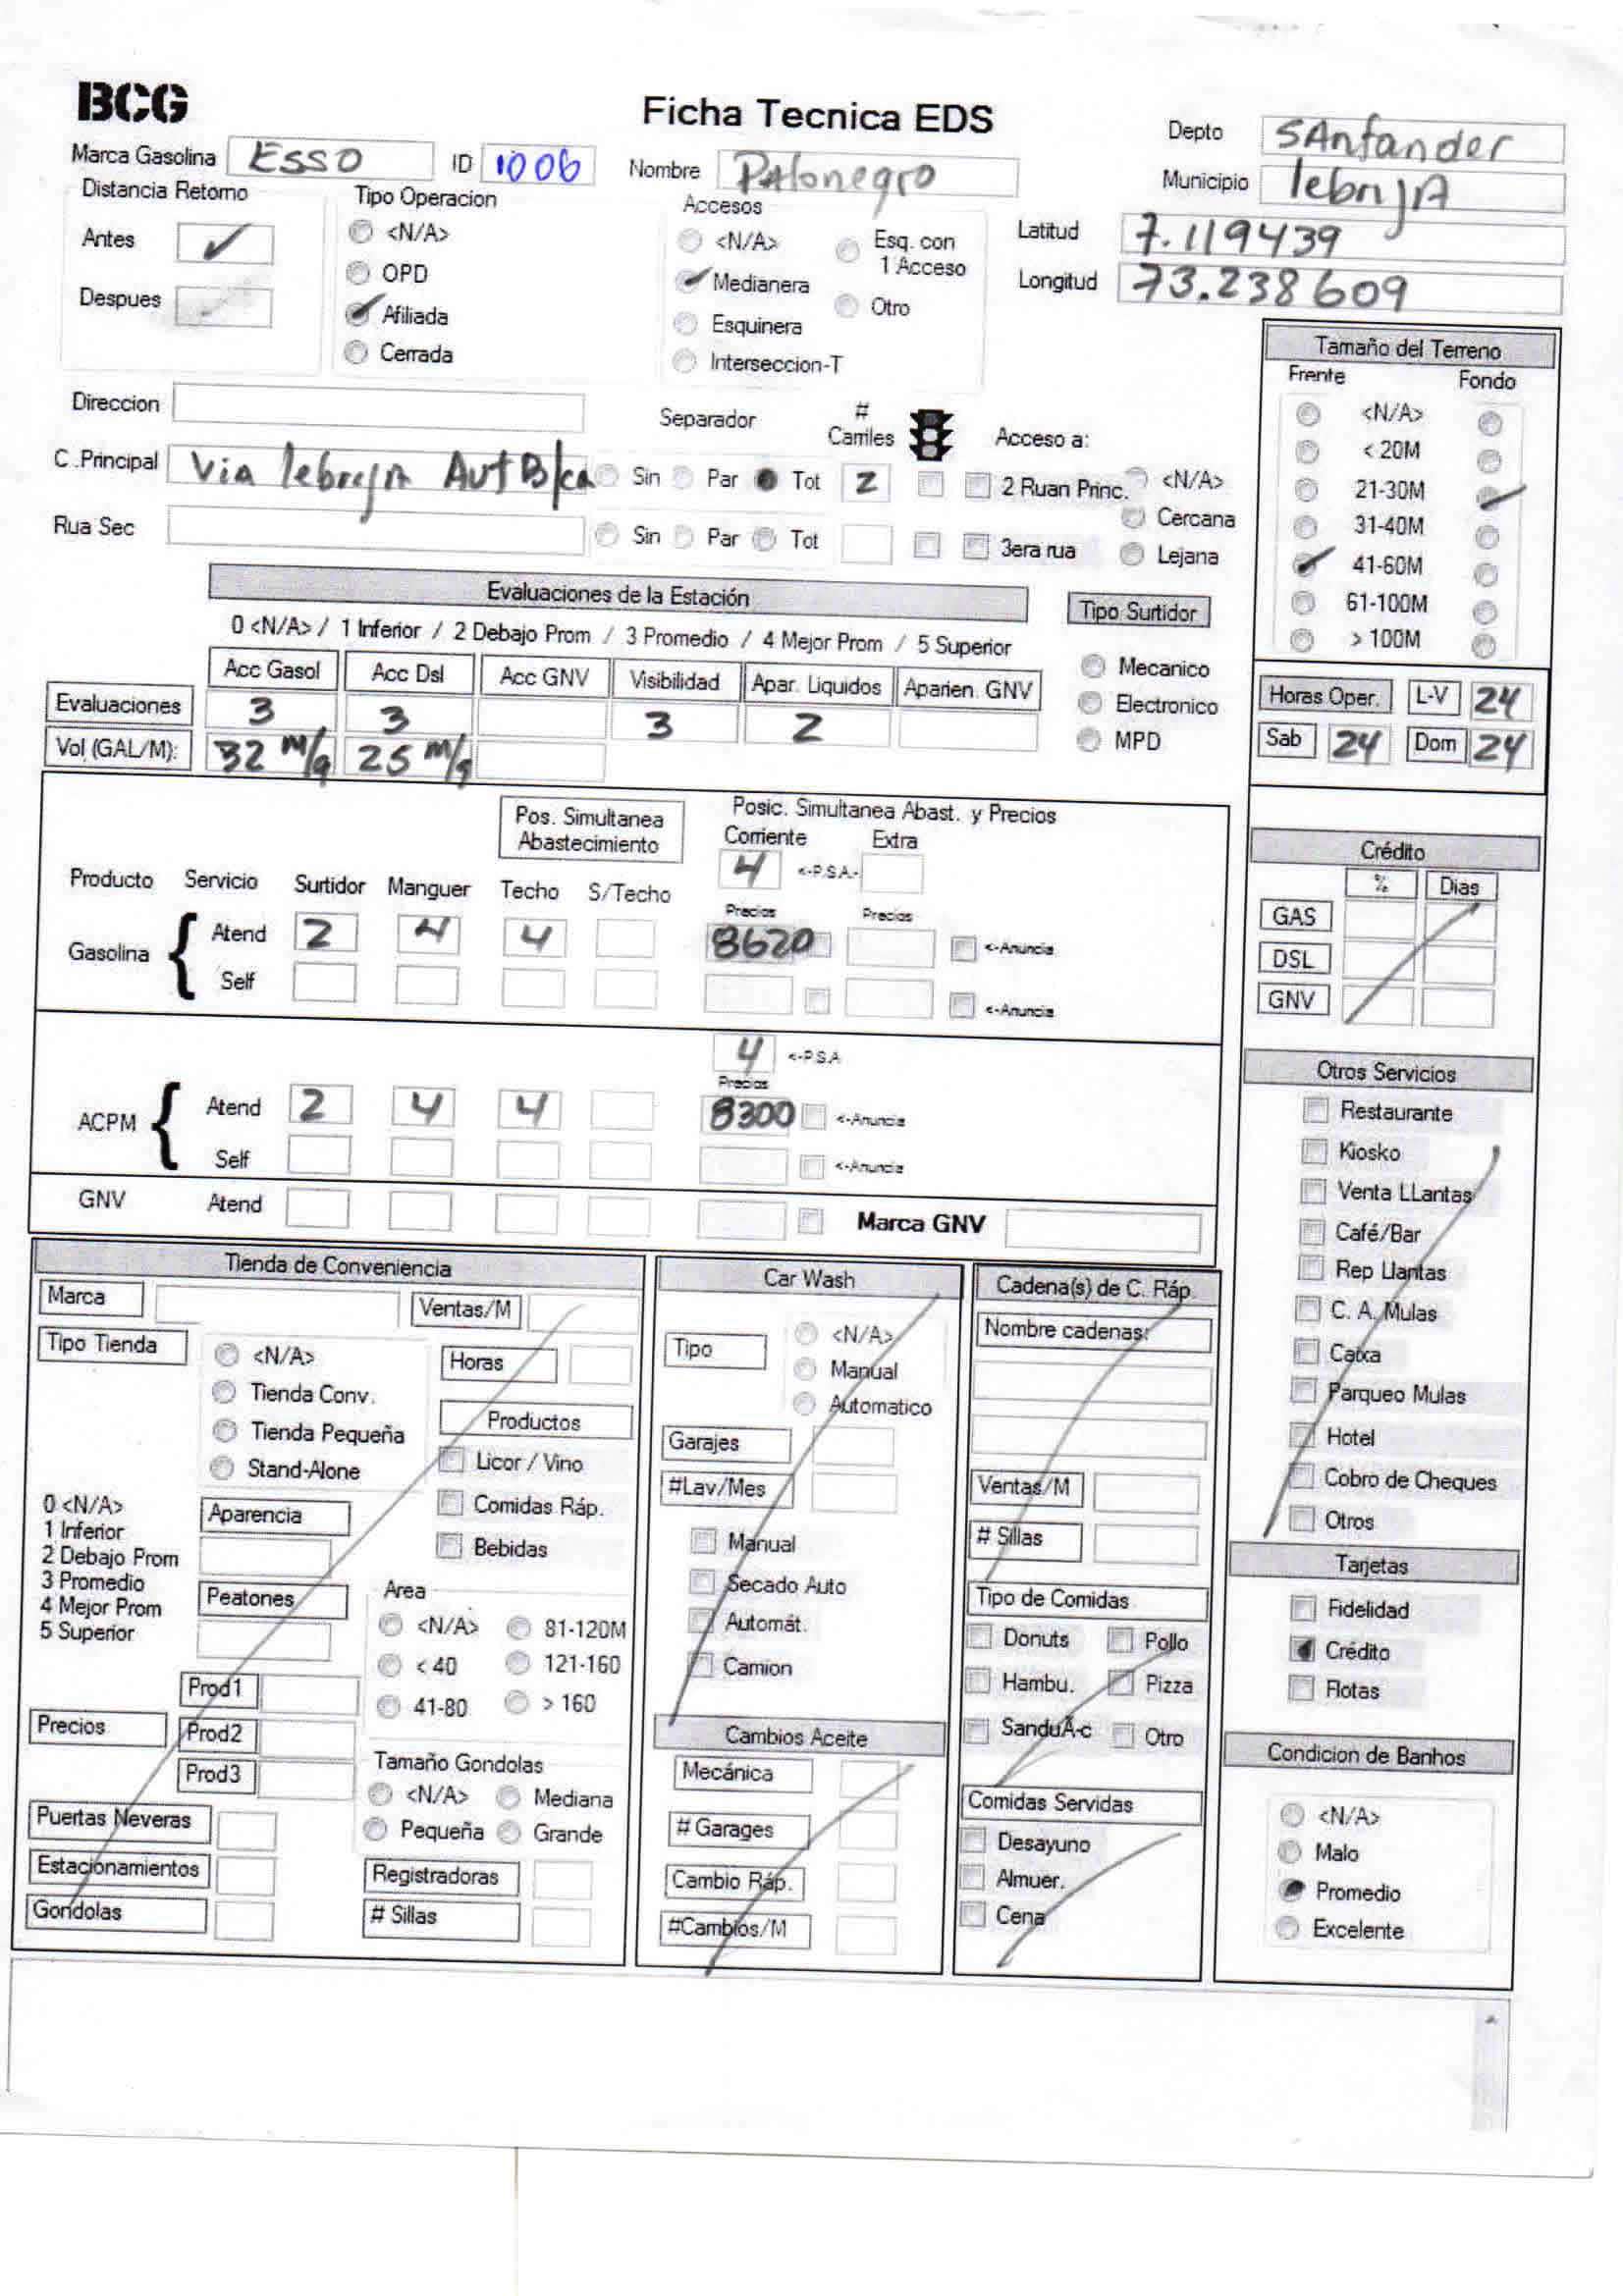 BCG
Ficha Tecnica EDS
Depto SAntander
Marca Gasolina ESSO ID 1006 Nombre PAlonegro
Municipio lebrijA
Distancia Retorno Tipo Operacion Accesos
Antes <N/A> <N/A> Esq. con 1 Acceso
Latitud 7.119439
OPD Medianera
Longitud 73.238609
Despues Afiliada Esquinera Otro
Cerrada Interseccion-T
Tamaño del Terreno
Frente Fondo
<N/A>
< 20M
21-30M
31-40M
41-60M
61-100M
> 100M
Direccion
Separador # Carriles Acceso a:
C .Principal Via lebrijA Aut B/ca Sin Par Tot 2 2 Ruan Princ. <N/A>
Cercana
Rua Sec Sin Par Tot 3era rua Lejana
Evaluaciones de la Estación
0 <N/A> / 1 Inferior / 2 Debajo Prom / 3 Promedio / 4 Mejor Prom / 5 Superior
Acc Gasol Acc Dsl Acc GNV Visibilidad Apar. Liquidos Aparien. GNV
Evaluaciones 3 3 3 2
Vol (GAL/M): 32 m/g 25 m/g
Tipo Surtidor
Mecanico
Electronico
MPD
Horas Oper. L-V 24
Sab 24 Dom 24
Pos. Simultanea Abastecimiento
Posic. Simultanea Abast. y Precios
Corriente Extra
4 <-P.S.A.-
Producto Servicio Surtidor Manguer Techo S/Techo
Precios Precios
Gasolina Atend 2 4 4 8620 <-Anuncia
Self <-Anuncia
4 <-P.S.A
Precios
ACPM Atend 2 4 4 8300 <-Anuncia
Self <-Anuncia
GNV Atend Marca GNV
Crédito
% Dias
GAS
DSL
GNV
Otros Servicios
Restaurante
Kiosko
Venta LLantas
Café/Bar
Rep Llantas
C. A. Mulas
Caixa
Parqueo Mulas
Hotel
Cobro de Cheques
Otros
Tarjetas
Fidelidad
Crédito
Flotas
Condicion de Banhos
<N/A>
Malo
Promedio
Excelente
Tienda de Conveniencia
Marca Ventas/M
Tipo Tienda <N/A> Horas
Tienda Conv.
Tienda Pequeña Productos
Stand-Alone Licor / Vino
Comidas Ráp.
Bebidas
0 <N/A>
1 Inferior
2 Debajo Prom
3 Promedio
4 Mejor Prom
5 Superior
Aparencia
Peatones
Area
<N/A> 81-120M
< 40 121-160
41-80 > 160
Precios Prod1
Prod2
Prod3
Tamaño Gondolas
<N/A> Mediana
Pequeña Grande
Puertas Neveras
Estacionamientos Registradoras
Gondolas # Sillas
Car Wash
Tipo <N/A>
Manual
Automatico
Garajes
#Lav/Mes
Manual
Secado Auto
Automát.
Camion
Cambios Aceite
Mecánica
# Garages
Cambio Ráp.
#Cambios/M
Cadena(s) de C. Ráp.
Nombre cadenas:
Ventas/M
# Sillas
Tipo de Comidas
Donuts Pollo
Hambu. Pizza
SanduÃ-c Otro
Comidas Servidas
Desayuno
Almuer.
Cena